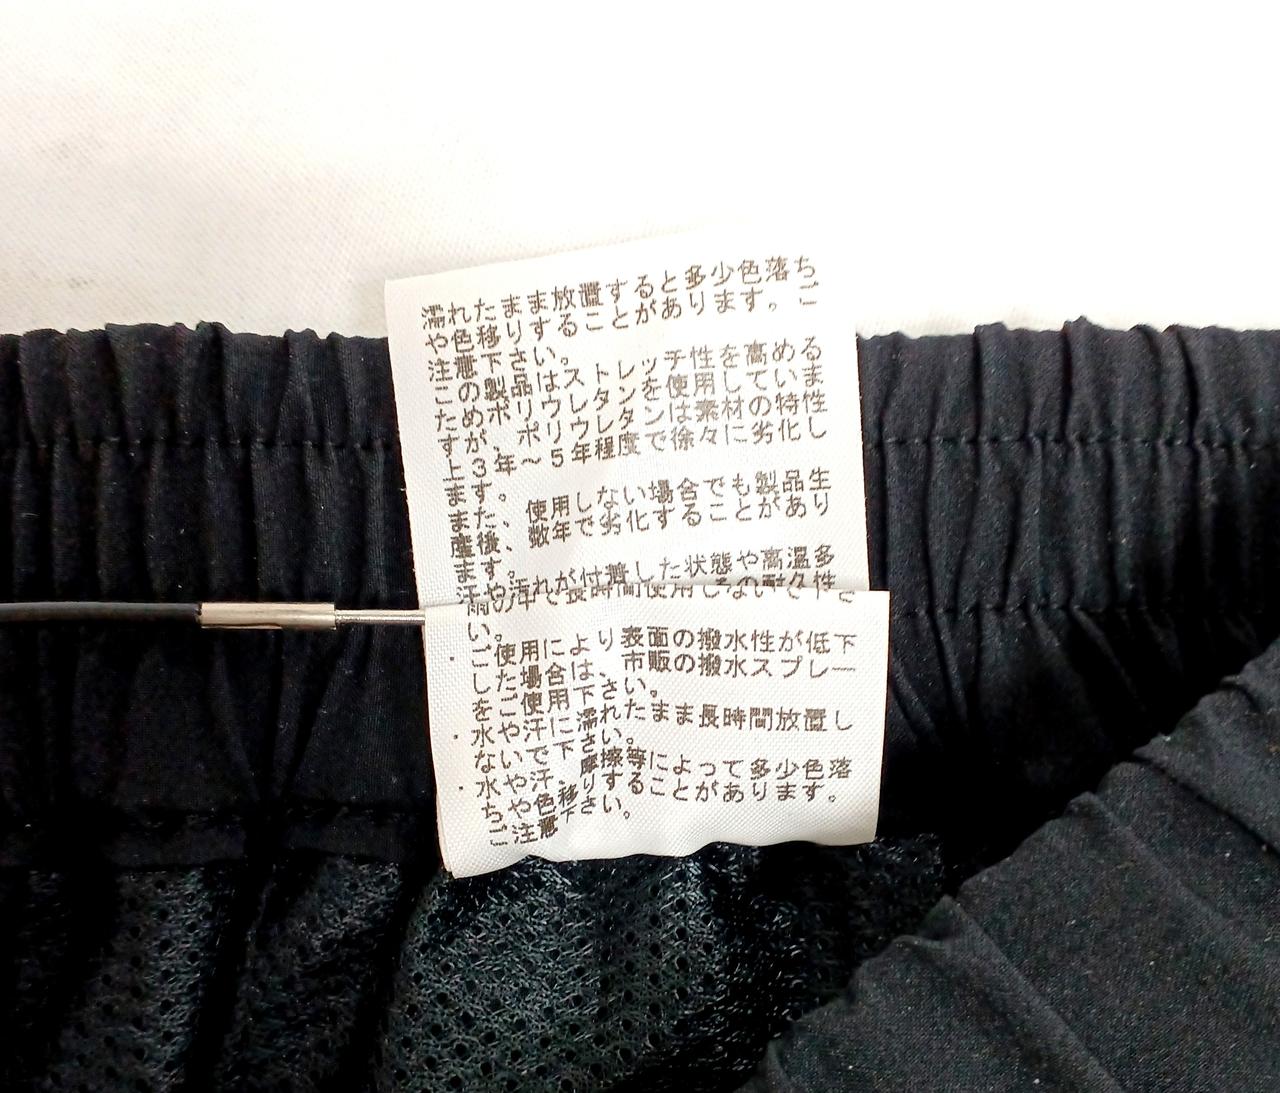 濡れたまま放置すると多少色落ち
や色移りすることがあります。ご
注意下さい。
この製品はストレッチ性を高める
ため、ポリウレタンを使用していま
すが、ポリウレタンは素材の特性
上3年～5年程度で徐々に劣化し
ます。
また、使用しない場合でも製品生
産後、数年で劣化することがあり
ます。
汗や汚れが付着した状態や高温多
雨の中で長時間使用しないで下さ
い。
・ご使用により表面の撥水性が低下
した場合は、市販の撥水スプレー
をご使用下さい。
・水や汗に濡れたまま長時間放置し
ないで下さい。
・水や汗、摩擦等によって多少色落
ちや色移りすることがあります。
ご注意下さい。